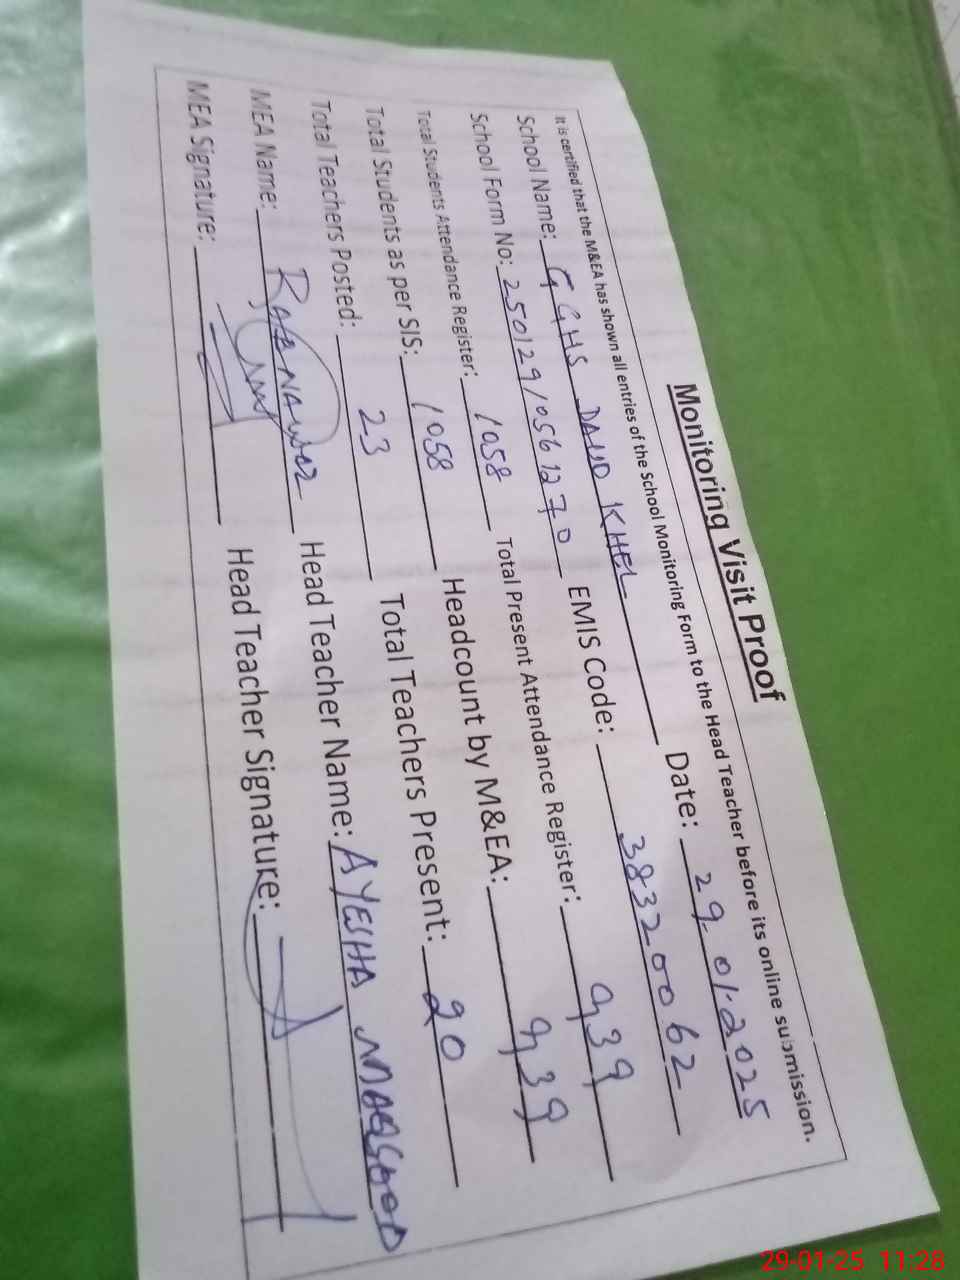 Monitoring Visit Proof
It is certified that the M&EA has shown all entries of the School Monitoring Form to the Head Teacher before its online submission.
School Name: GGHS DAUD KHEL Date: 29.01.2025
School Form No: 25012910561270 EMIS Code: 38320062
Total Students Attendance Register: 1058 Total Present Attendance Register: 939
Total Students as per SIS: 1058 Headcount by M&EA: 939
Total Teachers Posted: 23 Total Teachers Present: 20
MEA Name: Head Teacher Name: AYESHA MAQSOOD
MEA Signature: Head Teacher Signature:
29-01-25 11:28